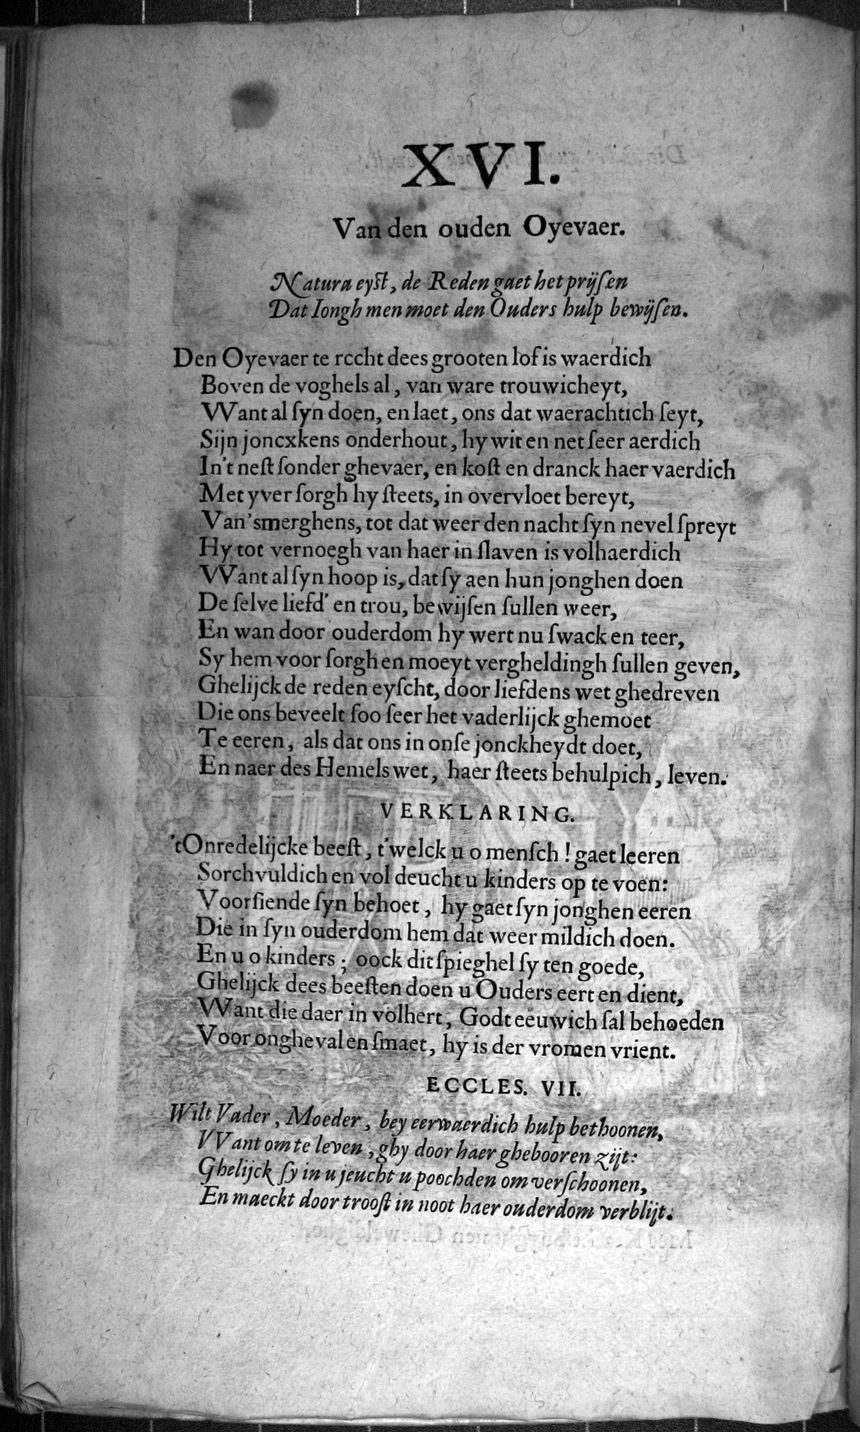 XVI.
Van den ouden Oyevaer.
Natura eyſt, de Reden gaet het prijſen
Dat Iongh men moet den Ouders hulp bewijſen.
Den Oyevaer te recht dees grooten lof is waerdich
Boven de voghels al, van ware trouwicheyt,
VVant al ſyn doen, en laet, ons dat waerachtich ſeyt,
Sijn joncxkens onderhout, hy wit en net ſeer aerdich
In't neſt ſonder ghevaer, en koſt en dranck haer vaerdich
Met yver ſorgh hy ſteets, in overvloet bereyt,
Van'smerghens, tot dat weer den nacht ſyn nevel ſpreyt
Hy tot vernoegh van haer in ſlaven is volhaerdich
VVant al ſyn hoop is, dat ſy aen hun jonghen doen
De ſelve liefd' en trou, bewijſen ſullen weer,
En wan door ouderdom hy wert nu ſwack en teer,
Sy hem voor ſorgh en moeyt vergheldingh ſullen geven,
Ghelijck de reden eyſcht, door liefdens wet ghedreven
Die ons beveelt ſoo ſeer het vaderlijck ghemoet
Te eeren, als dat ons in onſe jonckheydt doet,
En naer des Hemels wet, haer ſteets behulpich, leven.
VERKLARING.
'tOnredelijcke beeſt, t'welck u o menſch! gaet leeren
Sorchvuldich en vol deucht u kinders op te voen:
Voorſiende ſyn behoet, hy gaet ſyn jonghen eeren
Die in ſyn ouderdom hem dat weer mildich doen.
En u o kinders; oock dit ſpieghel ſy ten goede,
Ghelijck dees beeſten doen u Ouders eert en dient,
VVant die daer in volhert, Godt eeuwich ſal behoeden
Voor ongheval en ſmaet, hy is der vromen vrient.
ECCLES. VII.
Wilt Vader, Moeder, bey eerwaerdich hulp bethoonen,
VVant om te leven, ghy door haer ghebooren zijt:
Ghelijck ſy in u jeucht u poochden om verſchoonen,
En maeckt door trooſt in noot haer ouderdom verblijt.